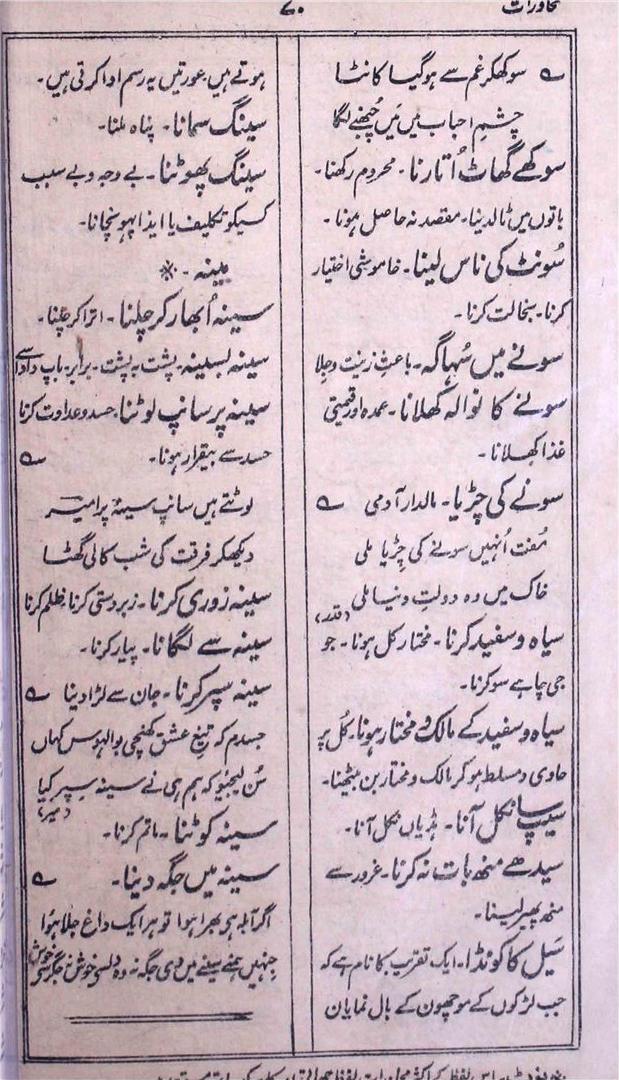 محاورات
۷۰
سوکھکر غم سے ہوگیا کانٹا
چشمِ احباب میں مَیں چُبھنے لگا
سوکھے گھاٹ اُتارنا۔ محروم رکھنا۔
باتوں میں ٹالدینا۔ مقصد نہ حاصل ہونا۔
سُونٹ کی ناس لینا۔ خاموشی اختیار
کرنا۔ بخالت کرنا۔
سونے میں سُہاگہ۔ باعثِ زینت و جِلا
سونے کا نوالہ کھلانا۔ عمدہ اور قیمتی
غذا کھلانا۔
سونے کی چڑیا۔ مالدار آدمی
مُفت اُنہیں سونے کی چڑیا ملی
خاک میں وہ دولتِ دنیا ملی
سیاہ و سفید کرنا۔ مختارِ کل ہونا۔ جو
جی چاہے سو کرنا۔
سیاہ و سفید کے مالک و مختار ہونا۔ کُل پر
حاوی و مسلط ہوکر مالک و مختار بن بیٹھنا۔
سیپ سا نکل آنا۔ ہڈیاں نکل آنا۔
سیدھے منھ بات نہ کرنا۔ غرور سے
منھ پھیر لینا۔
سَیل کا کونڈا۔ ایک تقریب کا نام ہے کہ
جب لڑکوں کے موچھوں کے بال نمایان
ہوتے ہیں۔ عورتیں یہ رسم ادا کرتی ہیں۔
سینگ سمانا۔ پناہ ملنا۔
سینگ پھوٹنا۔ بے وجہ و بے سبب
کسیکو تکلیف یا ایذا پہونچانا۔
سینہ۔
سینہ اُبھار کر چلنا۔ اترا کر چلنا۔
سینہ بسینہ۔ پشت بہ پشت۔ برابر۔ باپ دادا سے
سینہ پر سانپ لوٹنا۔ حسد و عداوت کرنا
حسد سے بیقرار ہونا۔
لوٹتے ہیں سانپ سینۂ پر امیر
دیکھکر فرقت کی شب کالی گھٹا
سینہ زوری کرنا۔ زبردستی کرنا۔ ظلم کرنا
سینہ سے لگانا۔ پیار کرنا۔
سینہ سپر کرنا۔ جان سے لڑا دینا
جسدم کہ تیغِ عشق کھنچی بوالہوس کہاں
سُن لیجیو کہ ہم ہی نے سینہ سپر کیا
(میر)
سینہ کوٹنا۔ ماتم کرنا۔
سینہ میں جگہ دینا۔
اگر آبلہ ہی بھرا ہوا تو ہر ایک داغ جلا ہُوا
جنہیں ہمنے سینے میں دی جگہ نہ وہ دلسے خوش نہ جگر سے خوش